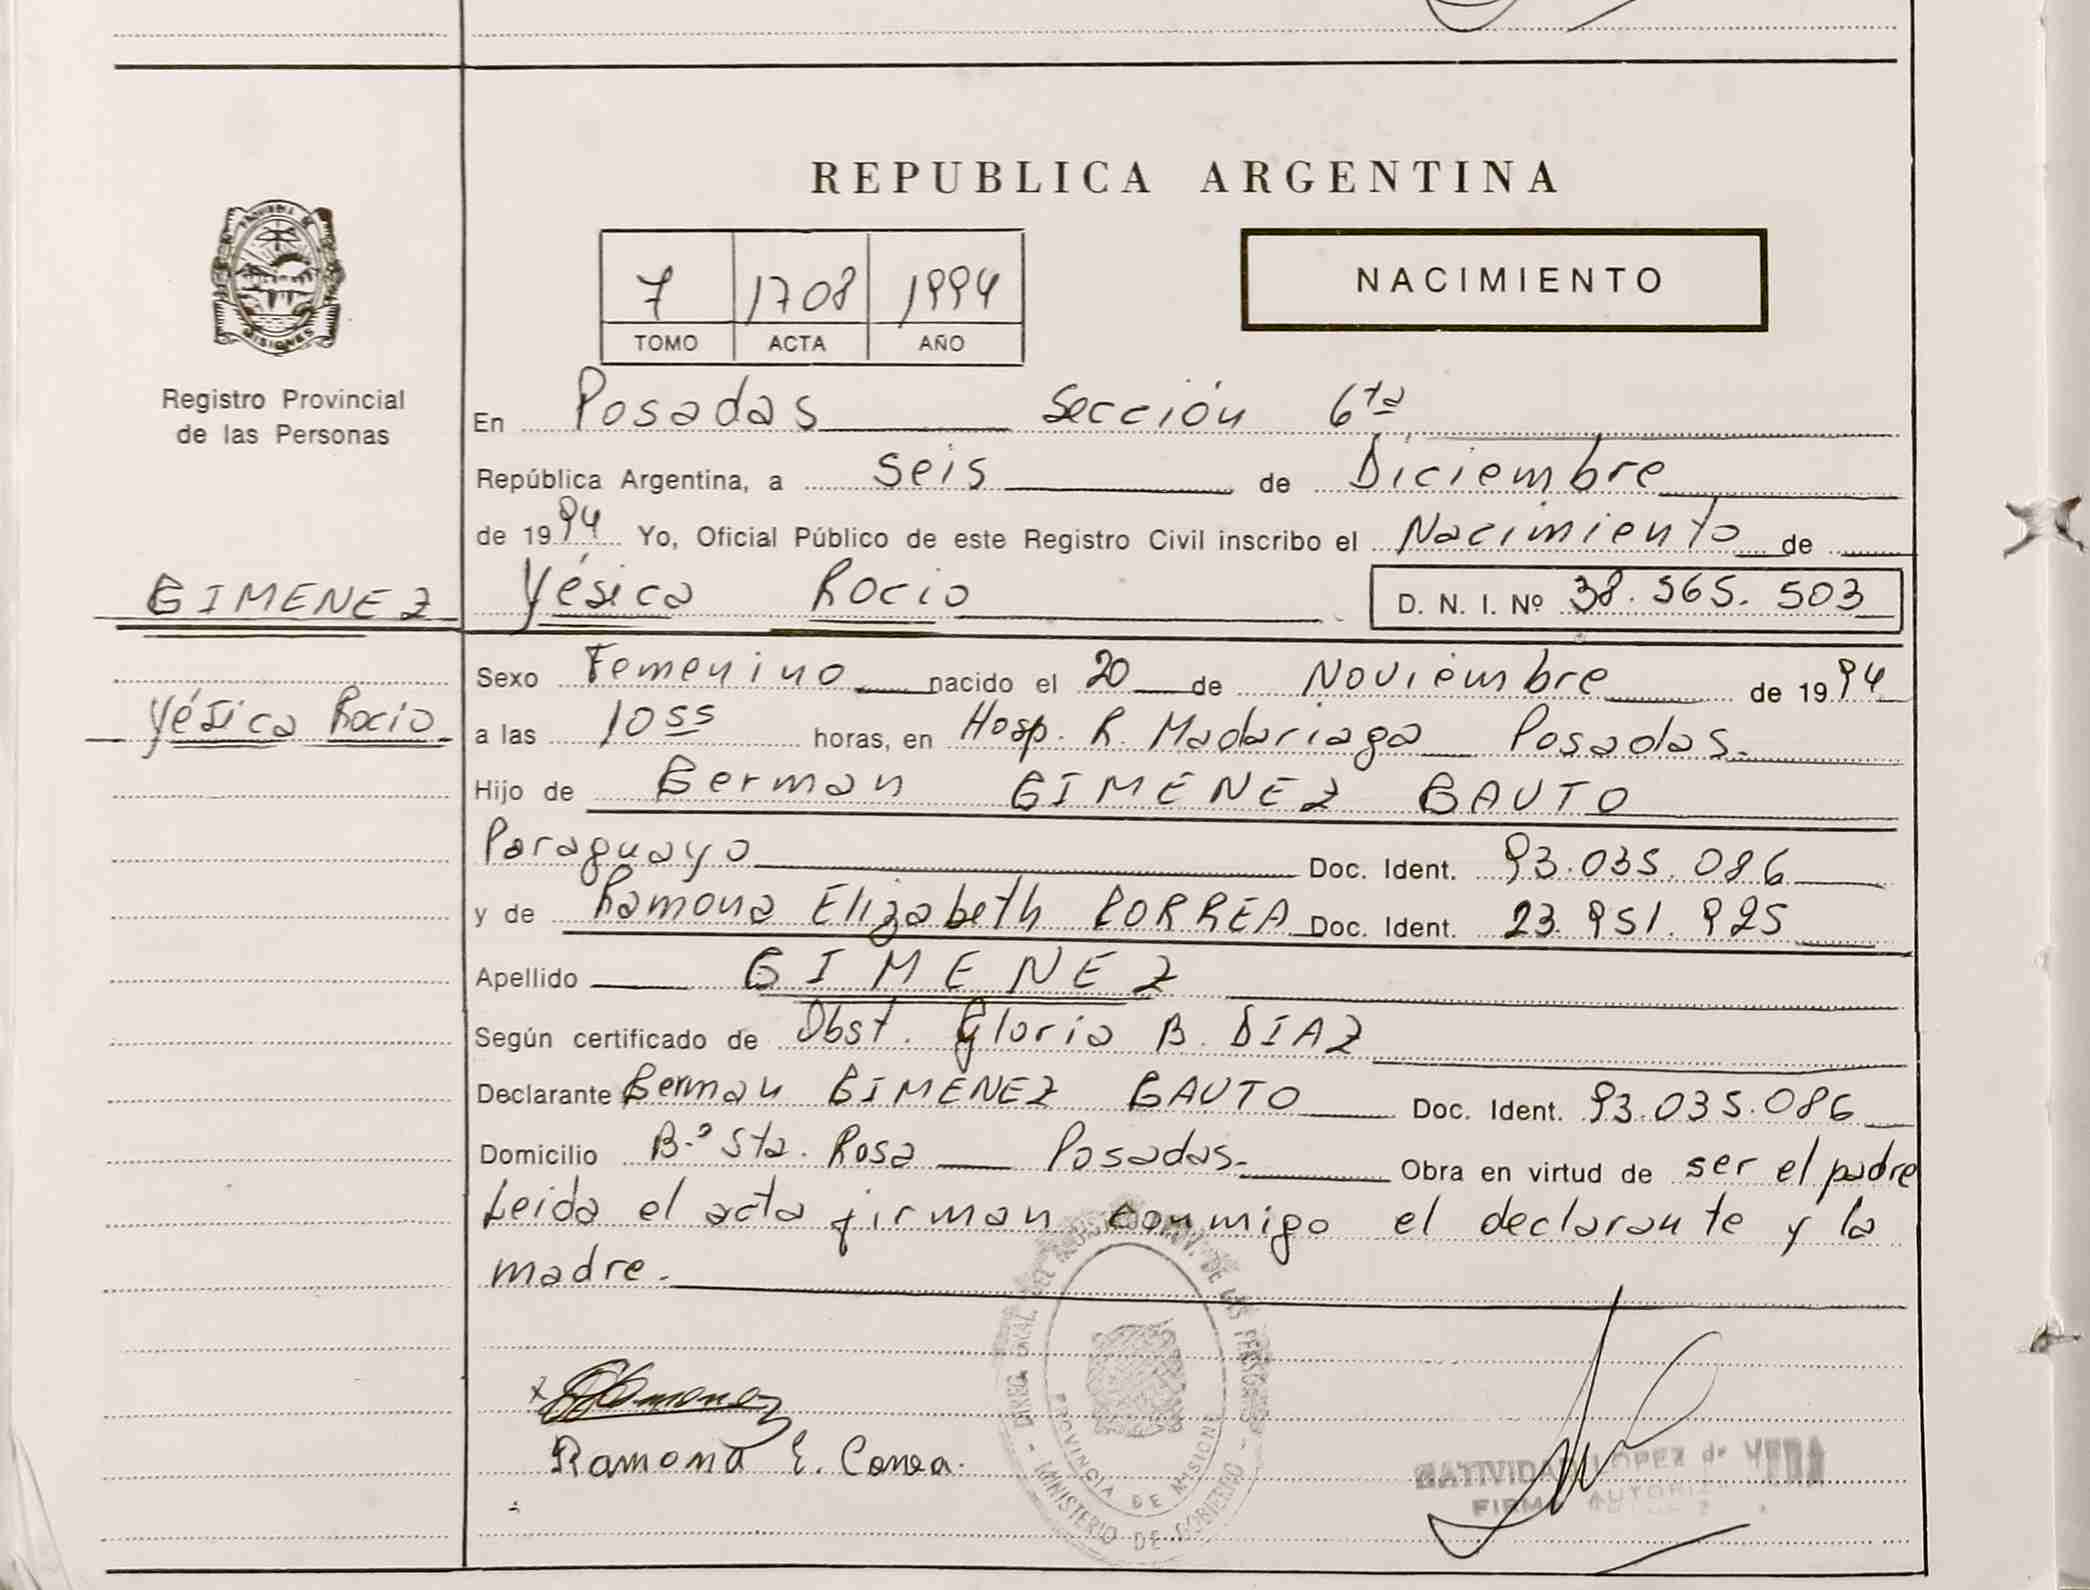 REPUBLICA ARGENTINA
7 1708 1994
TOMO ACTA AÑO
NACIMIENTO
MISIONES
Registro Provincial
de las Personas
En Posadas Sección 6ta
República Argentina, a seis de Diciembre
de 1994 Yo, Oficial Público de este Registro Civil inscribo el Nacimiento de
GIMENEZ Yésica Rocio D. N. I. Nº 38.565.503
Sexo Femenino nacido el 20 de Noviembre de 1994
Yésica Rocio a las 10 55 horas, en Hosp. R. Madariaga Posadas.
Hijo de German GIMENEZ GAUTO
Paraguayo Doc. Ident. 93.035.086
y de Ramona Elizabeth CORREA Doc. Ident. 23.951.925
Apellido GIMENEZ
Según certificado de Obst. Gloria B. DIAZ
Declarante German GIMENEZ GAUTO Doc. Ident. 93.035.086
Domicilio B.º Sta. Rosa Posadas. Obra en virtud de ser el padre
Leida el acta firman conmigo el declarante y la
madre.
Ramona E. Correa.
PROVINCIA DE MISIONES
MINISTERIO DE GOBIERNO
NATIVIDAD LOPEZ de VERA